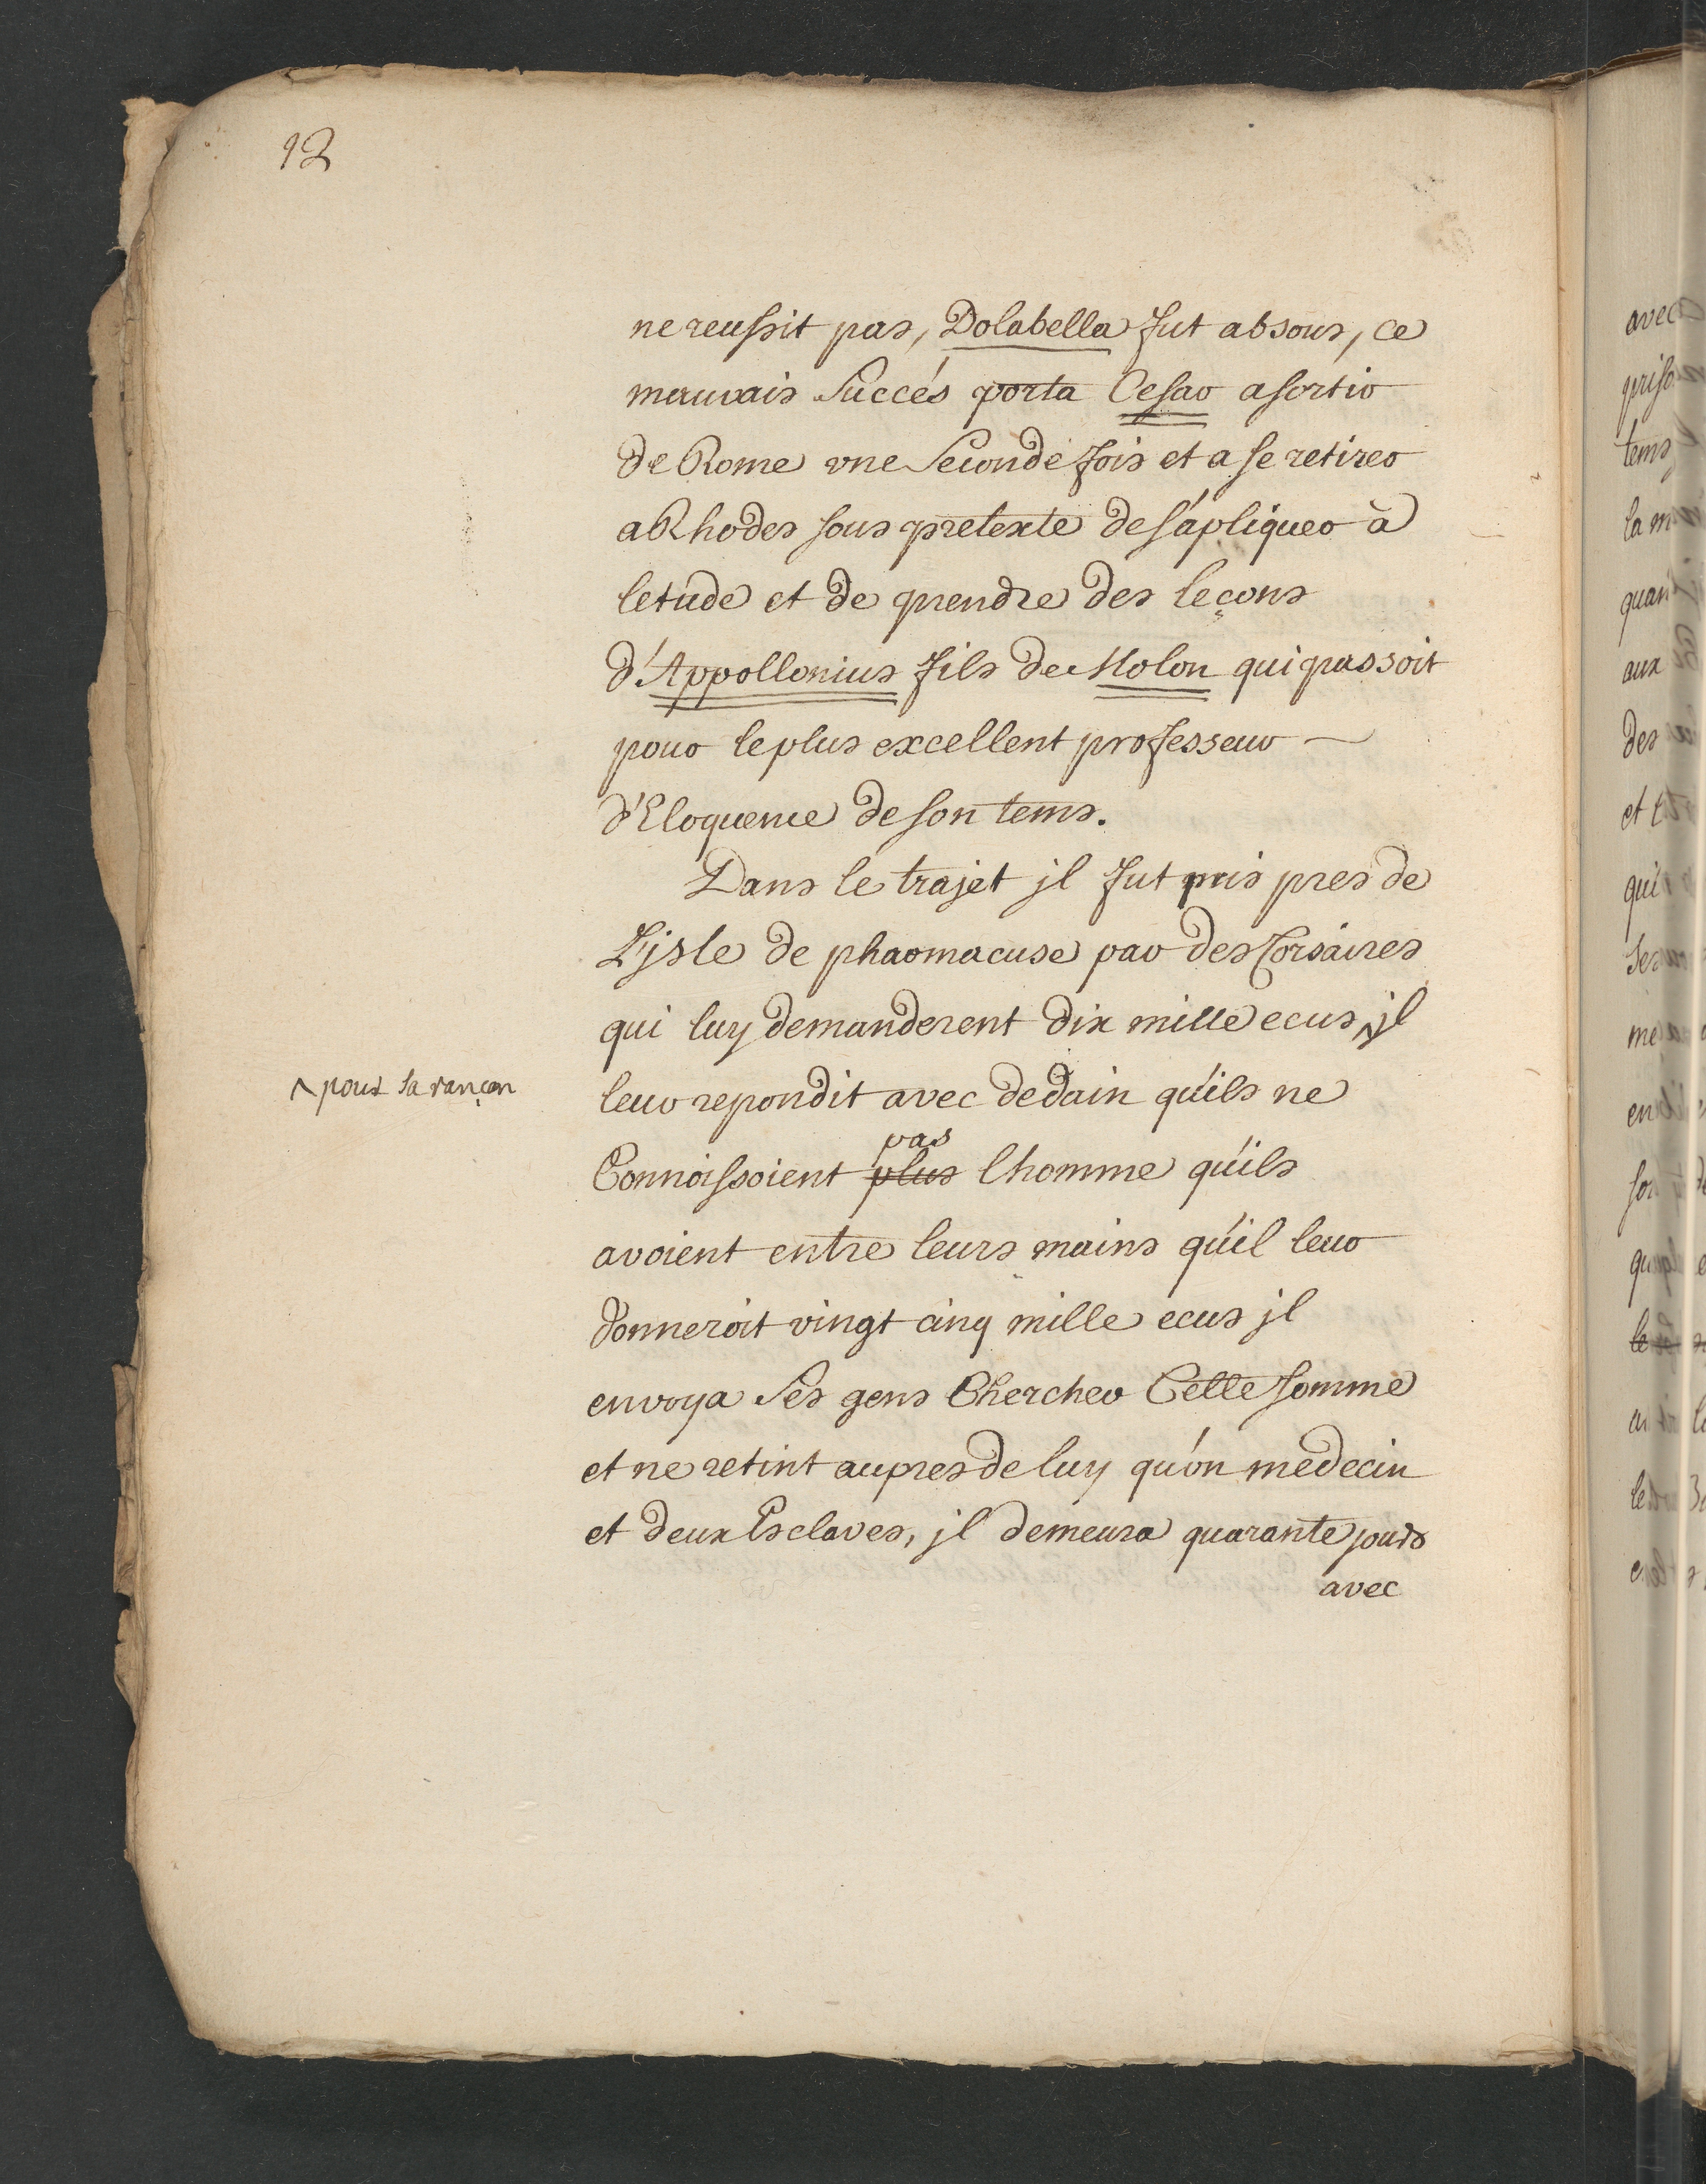 12
ne reussit pas, Dolabella fut absous, ce
mauvais Succés porta Cesar a sortir
de Rome vne Seconde fois et a se retirer
a Rhodes sous pretexte de s'apliquer à
letude et de prendre des leçons
d'Appollonius fils de Molon qui passoit
pour le plus excellent professeur
d'Eloquence de son tems.
Dans le trajet jl fut pris pres de
L'jsle de pharmacuse par des Corsaires
qui luy demanderent dix mille ecus ^ jl
^ pour sa rançon
leur repondit avec dedain qu'ils ne
pas
Connoissoient plus lhomme qu'ils
avoient entre leurs mains qu'il leur
donneroit vingt cinq mille ecus jl
envoya Ses gens Chercher Cette somme
et ne retint aupres de luy qu'on medecin
et deux Esclaves, jl demeura quarante jours
avec
avec
priso
tems
la m
quan
aux
des
et t
qui
Ses
me
en
so
qu
le